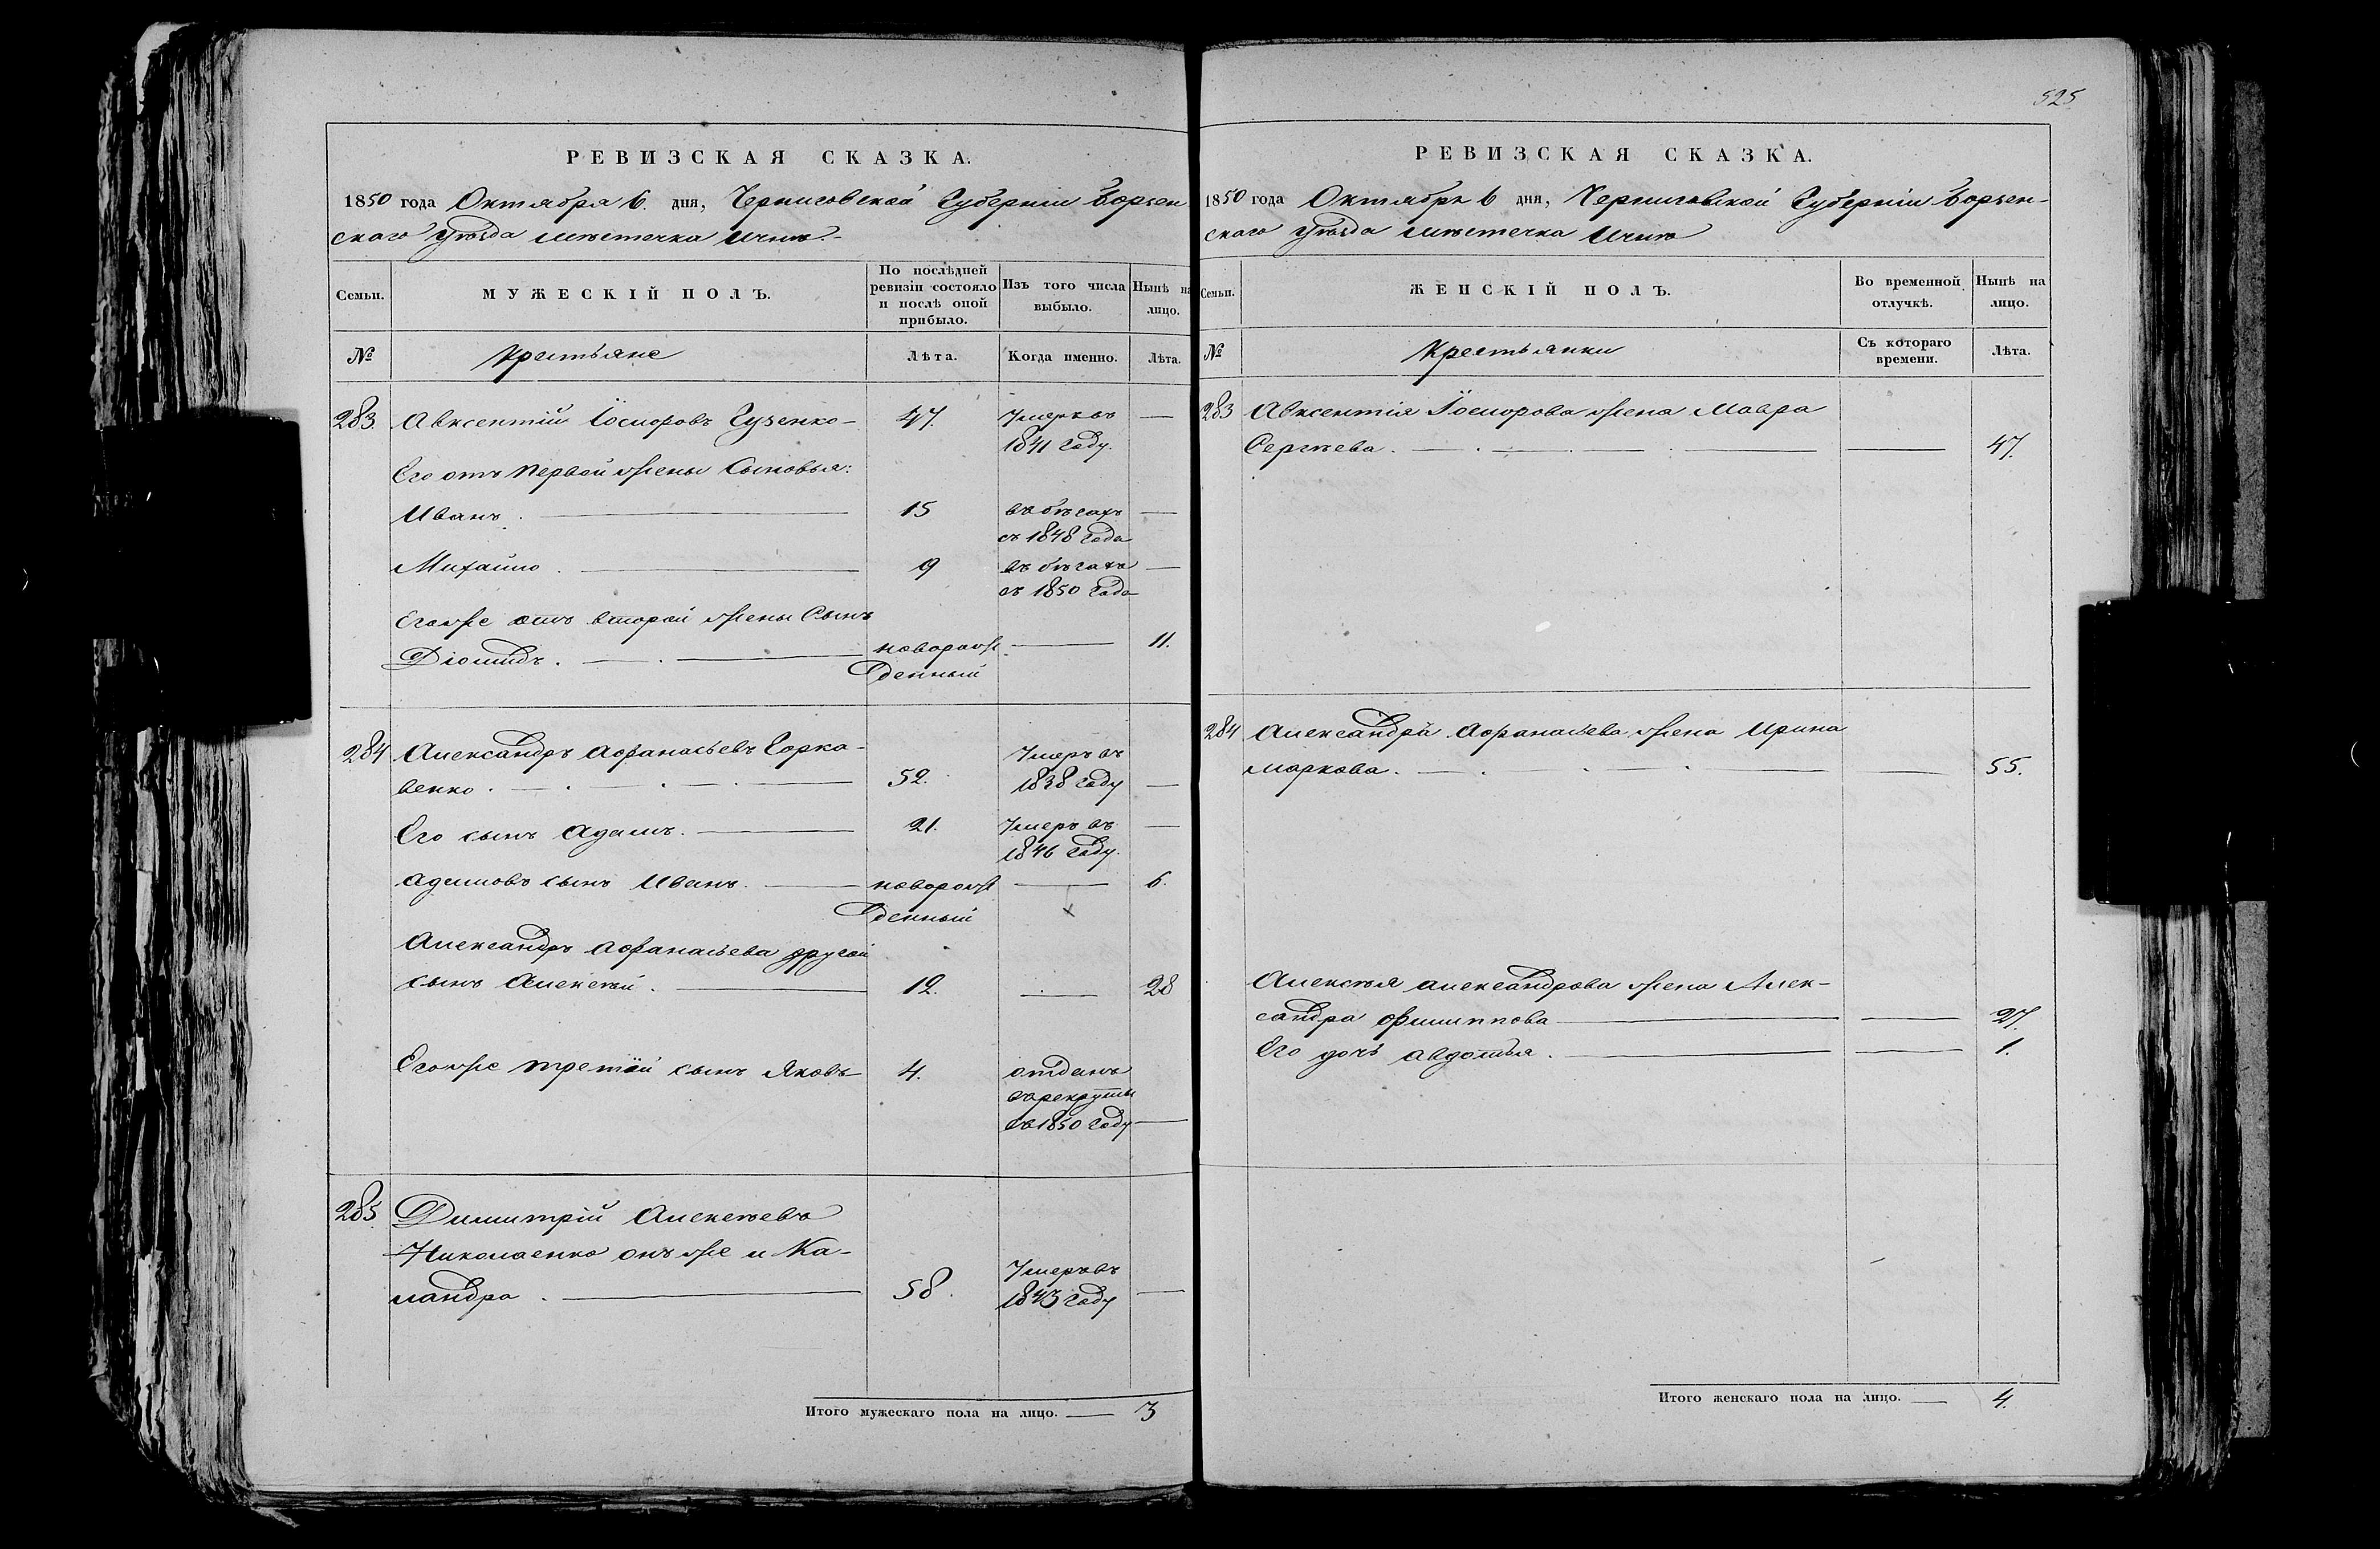 РЕВИЗСКАЯ СКАЗКА.
1850 года Октября 6. дня, Черниговской Губерніи Борзен
скаго Уѣзда мѣстечка Ични.
Семьи.
МУЖЕСКІЙ ПОЛЪ.
По послѣдней
ревизіи состояло
и послѣ оной
прибыло.
Изъ того числа
выбыло.
Нынѣ на
лицо.
№
Крестьяне
Лѣта.
Когда именно.
Лѣта.
283 Авксентій Гузенко 47. Умеръ въ —
1841 году.
Его отъ первой жены Сыновья:
Иванъ. 15 въ бѣгахъ —
съ 1848 года
Михайло. 9 въ бѣгахъ —
съ 1850 года
Егоже отъ второй жены Сынъ
Діомидъ. новорож — 11.
денный
284 Александръ Афанасьевъ Горка-
венко. 52. Умеръ въ
1838 году —
Его сынъ Адамъ. 21. Умеръ въ —
1846 году.
Адамовъ сынъ Иванъ. новорож — 6.
денный
Александръ Афанасьева другой
сынъ Алексѣй. 12. — 28
Егоже третій сынъ Яковъ 4. отданъ
въ рекруты
въ 1850 году —
285. Димитрій Алексѣевъ
Николаенко онъ же и Ка-
ландра. 58. Умеръ въ
1843 году —
Итого мужескаго пола на лицо. — 3
525
РЕВИЗСКАЯ СКАЗКА.
1850 года Октября 6 дня, Черниговской Губерніи Борзен-
скаго Уѣзда мѣстечка Ични
Семьи.
ЖЕНСКІЙ ПОЛЪ.
Во временной
отлучкѣ.
Нынѣ на
лицо.
№
Крестьянки
Съ котораго
времени.
Лѣта.
283 Авксентія жена Мавра
Сергѣева. — 47.
284 Александра Афанасьева жена Ирина
Маркова. — 55.
Алексѣя Александрова жена Алек-
сандра Филиппова — 27.
Его дочь Авдотья. — 1.
Итого женскаго пола на лицо. — 4.